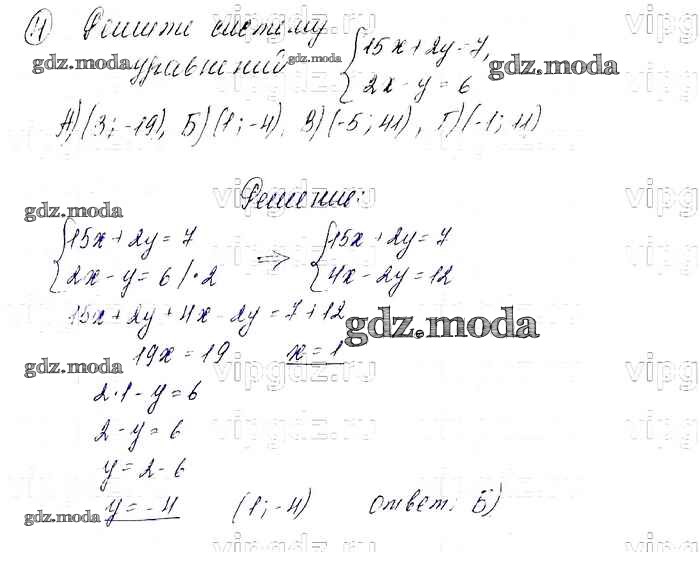 4) Решите систему
уравнений { 15x + 2y = 7,
2x - y = 6
А) (3; -19), Б) (1; -4), В) (-5; 41), Г) (-1; 11)
Решение:
{ 15x + 2y = 7
2x - y = 6 | · 2
=> { 15x + 2y = 7
4x - 2y = 12
15x + 2y + 4x - 2y = 7 + 12
19x = 19 x = 1
2 · 1 - y = 6
2 - y = 6
y = 2 - 6
y = -4 (1; -4) Ответ: Б)
gdz.moda
gdz.moda
gdz.moda
gdz.moda
gdz.moda
gdz.moda
gdz.moda
vipgdz.ru